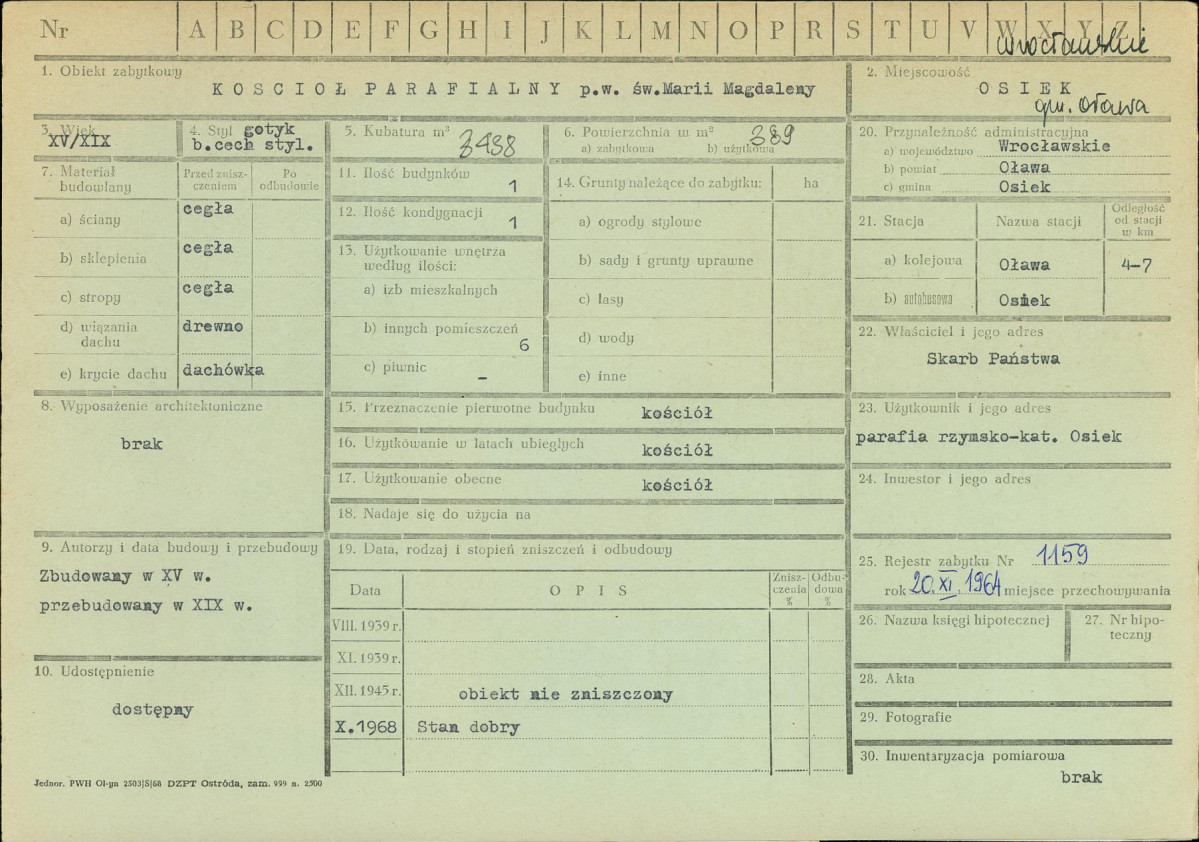 Nr A B C D E F G H I J K L M N O P R S T U V W X Y Z
wrocławskie
1. Obiekt zabytkowy
KOSCIOŁ PARAFIALNY p.w. św.Marii Magdaleny
2. Miejscowość
OSIEK
gm. Oława
3. Wiek
XV/XIX
4. Styl gotyk
b.cech styl.
5. Kubatura m³
3438
6. Powierzchnia w m²
a) zabytkowa b) użytkowa
389
7. Materiał
budowlany
Przed znisz-
czeniem
Po
odbudowie
a) ściany cegła
b) sklepienia cegła
c) stropy cegła
d) wiązania
dachu drewno
e) krycie dachu dachówka
8. Wyposażenie architektoniczne
brak
9. Autorzy i data budowy i przebudowy
Zbudowany w XV w.
przebudowany w XIX w.
10. Udostępnienie
dostępny
11. Ilość budynków
1
12. Ilość kondygnacji
1
13. Użytkowanie wnętrza
według ilości:
a) izb mieszkalnych
b) innych pomieszczeń
6
c) piwnic
–
14. Grunty należące do zabytku: ha
a) ogrody stylowe
b) sady i grunty uprawne
c) lasy
d) wody
e) inne
15. Przeznaczenie pierwotne budynku kościół
16. Użytkowanie w latach ubiegłych kościół
17. Użytkowanie obecne kościół
18. Nadaje się do użycia na
19. Data, rodzaj i stopień zniszczeń i odbudowy
Data OPIS
Znisz-
czenia
%
Odbu-
dowa
%
VIII. 1939 r.
XI. 1939 r.
XII. 1945 r. obiekt nie zniszczony
X.1968 Stan dobry
20. Przynależność administracyjna
a) województwo Wrocławskie
b) powiat Oława
c) gmina Osiek
21. Stacja Nazwa stacji
Odległość
od stacji
w km
a) kolejowa Oława 4-7
b) autobusowa Osiek
22. Właściciel i jego adres
Skarb Państwa
23. Użytkownik i jego adres
parafia rzymsko-kat. Osiek
24. Inwestor i jego adres
25. Rejestr zabytku Nr 1159
rok 20.XI.1964 miejsce przechowywania
26. Nazwa księgi hipotecznej
27. Nr hipo-
teczny
28. Akta
29. Fotografie
30. Inwentaryzacja pomiarowa
brak
Jednor. PWH Ol-yn 2503|S|68 DZPT Ostróda, zam. 999 n. 2500